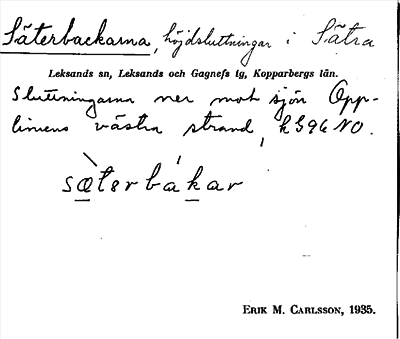 Säterbackarna, höjdsluttningar i Sätra
Leksands sn, Leksands och Gagnefs tg, Kopparbergs län.
Sluttningarna ner mot sjön Opp-
limens västra strand, k G96 NO.
sæ̀terbákar
ERIK M. CARLSSON, 1935.